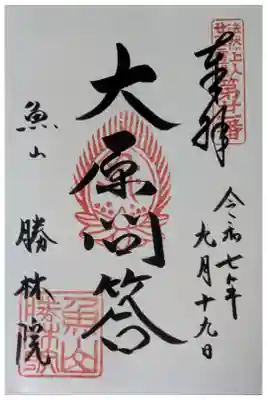 法然上人
第廿一番
奉拝
令和七年
九月十九日
大原問答
魚山
勝林院
魚山
勝林院